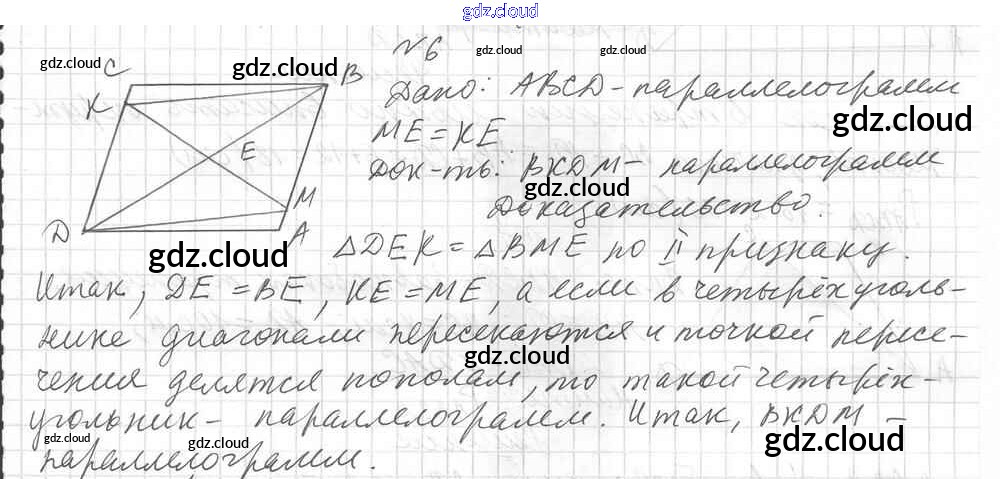 gdz.cloud
№6
gdz.cloud gdz.cloud gdz.cloud gdz.cloud
C B K E M D A
Дано: ABCD - параллелограмм
gdz.cloud
ME = KE
Док-ть: BKDM - параллелограмм
gdz.cloud
Доказательство.
gdz.cloud
△DEK = △BME по II признаку.
Итак, DE = BE, KE = ME, а если в четырёхуголь-
нике диагонали пересекаются и точкой пересе-
gdz.cloud
чения делятся пополам, то такой четырёх-
угольник - параллелограмм. Итак, BKDM -
gdz.cloud gdz.cloud gdz.cloud
параллелограмм.